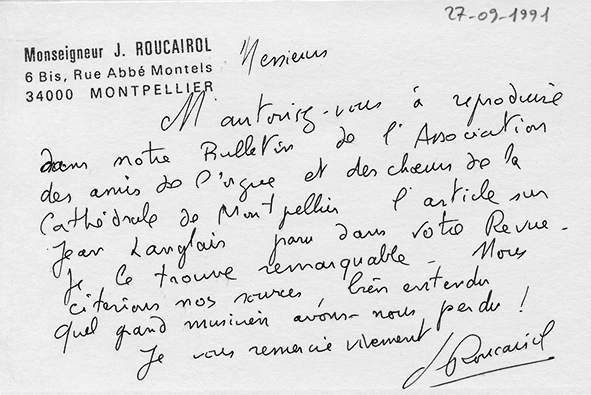 27-09-1991
Monseigneur J. ROUCAIROL
6 Bis, Rue Abbé Montels
34000 MONTPELLIER
Messieurs
M'autorisez-vous à reproduire
dans notre Bulletin de l'Association
des amis de l'orgue et des chœurs de la
Cathédrale de Montpellier l'article sur
Jean Langlais paru dans votre Revue -
Je le trouve remarquable - Nous
citerions nos sources, bien entendu
Quel grand musicien avons-nous perdu !
Je vous remercie vivement
J Roucairol